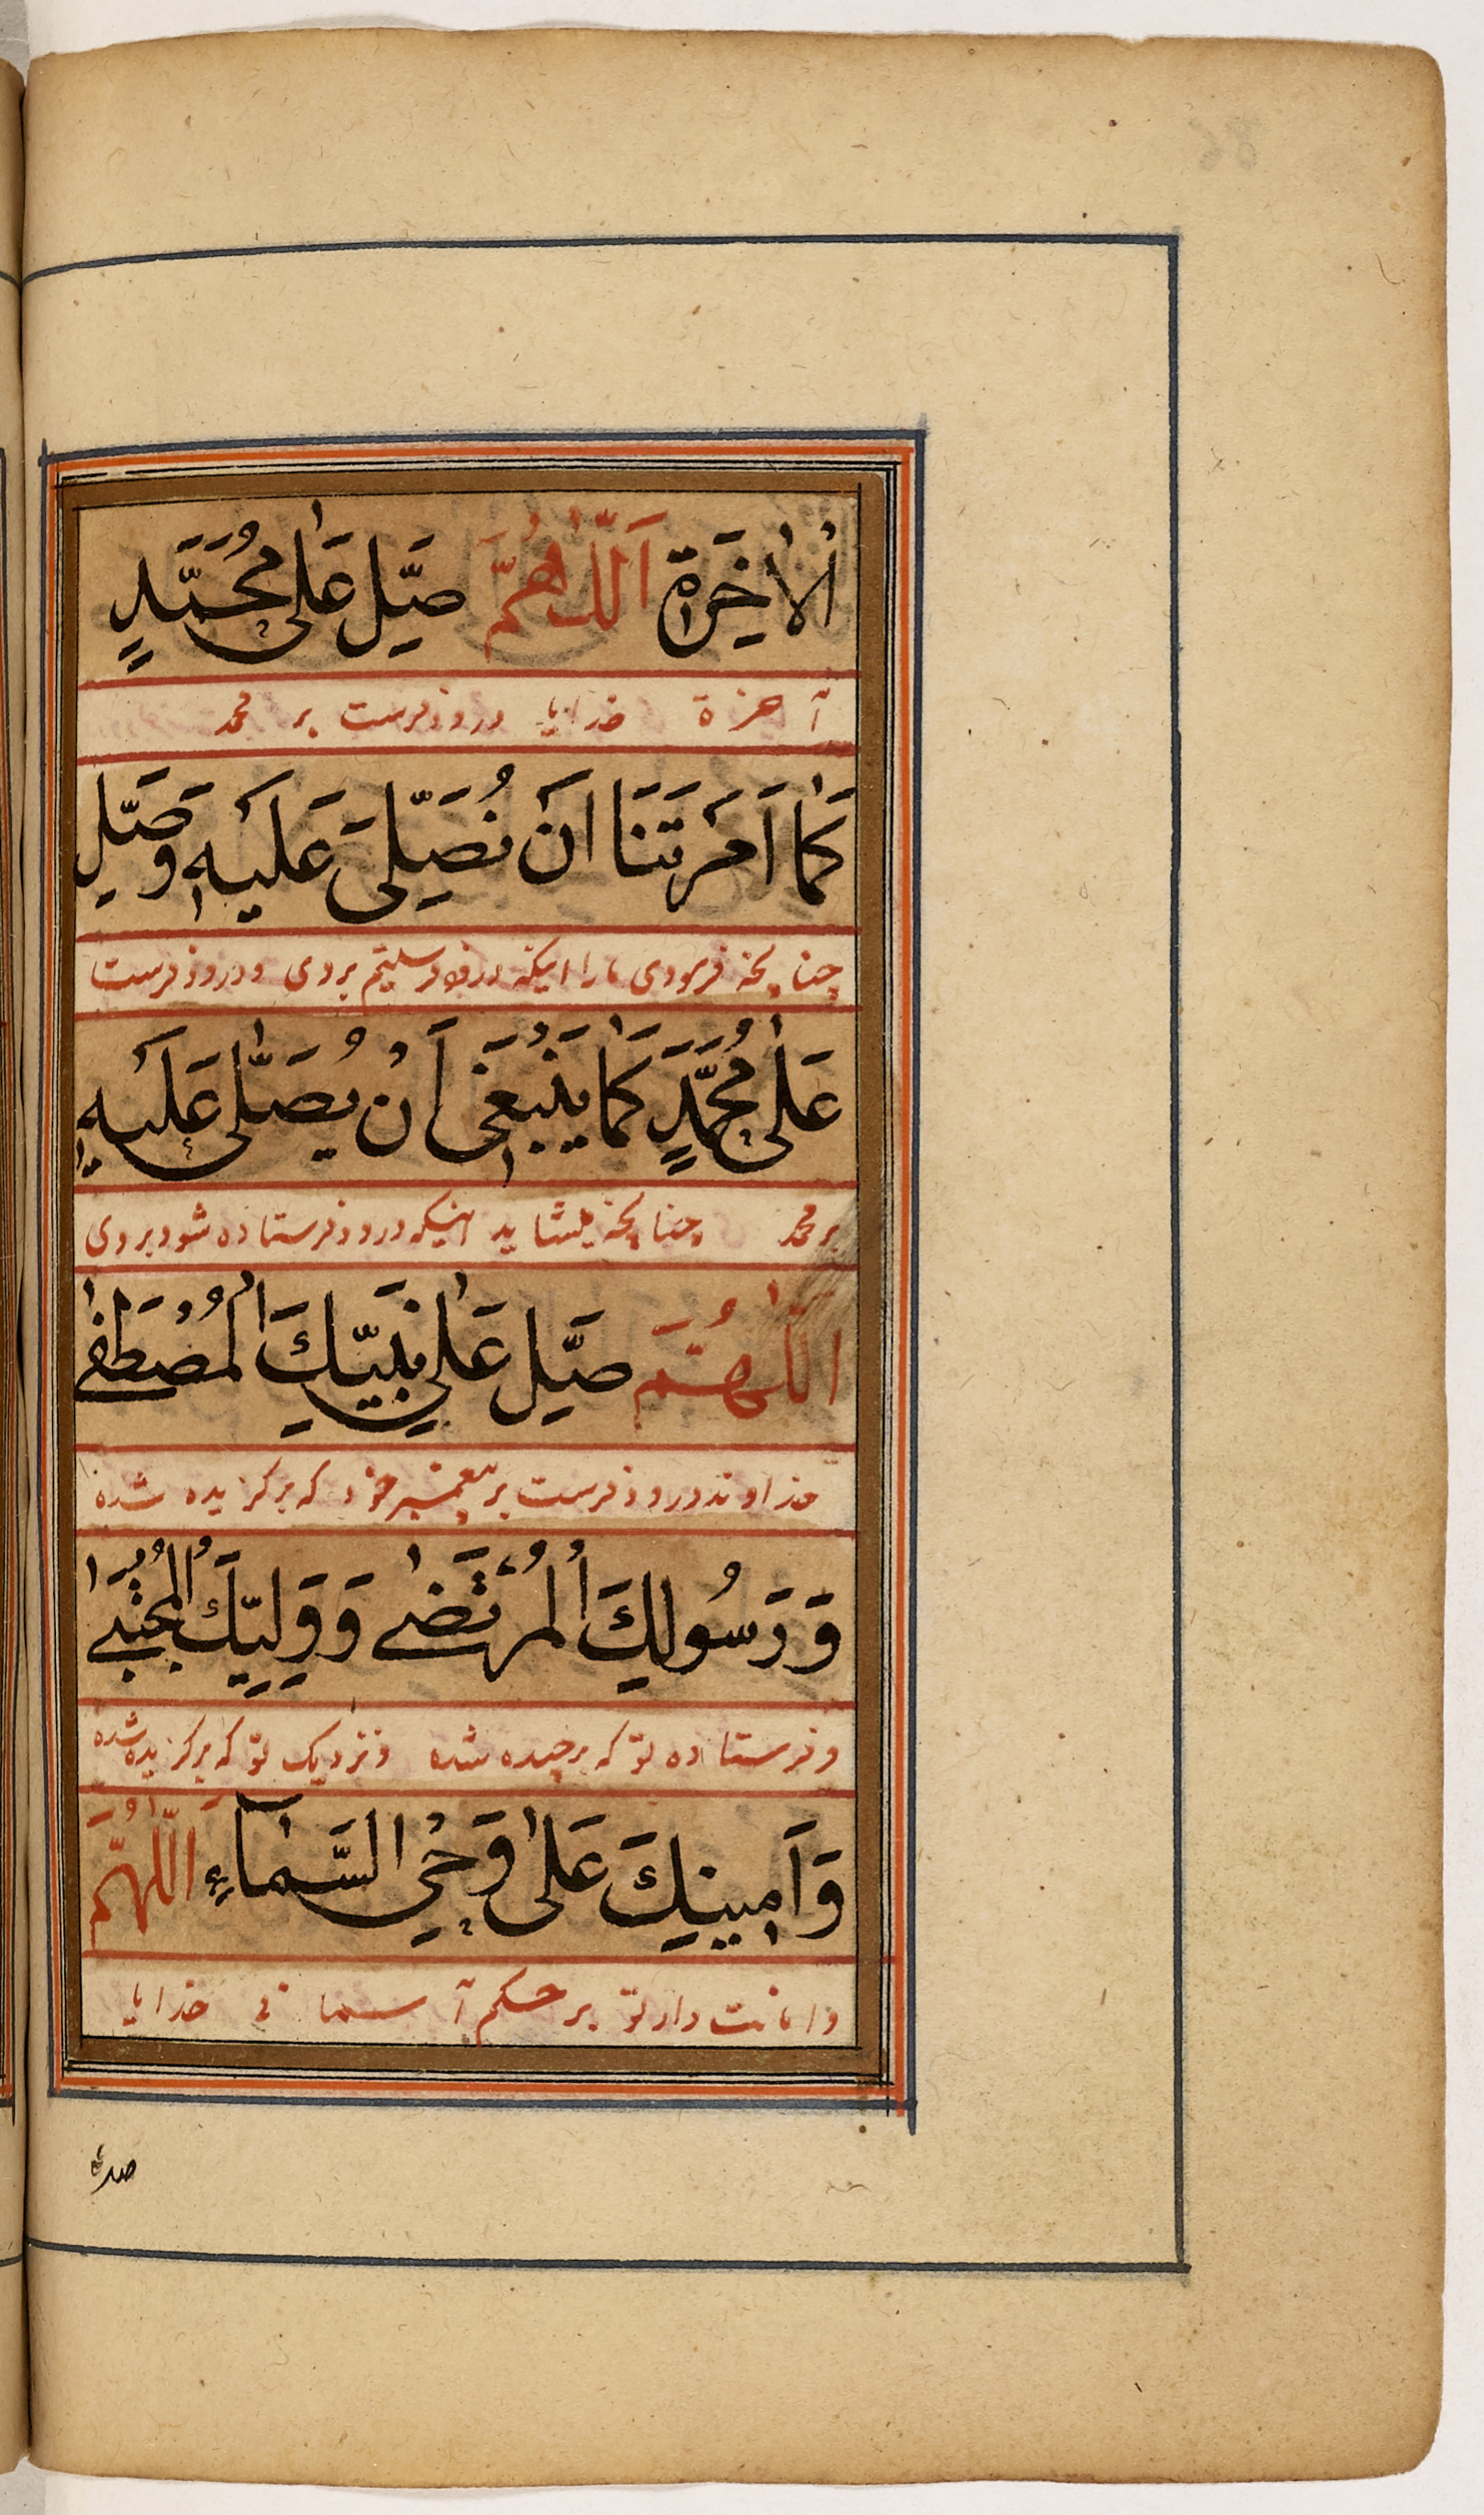 الْاٰخِرَةِ اَللّٰهُمَّ صَلِّ عَلٰى مُحَمَّدٍ
آخرة خدایا درود فرست بر محمد
كَمَا اَمَرْتَنَا اَنْ نُصَلِّىَ عَلَيْهِ وَصَلِّ
چنانچه فرمودی مارا اینکه درود فرستیم بروی و درود فرست
عَلٰى مُحَمَّدٍ كَمَا يَنْبَغِى اَنْ يُصَلّٰى عَلَيْهِ
بر محمد چنانچه میشاید اینکه درود فرستاده شود بروی
اَللّٰهُمَّ صَلِّ عَلٰى نَبِيِّكَ الْمُصْطَفٰى
خداوند درود فرست بر پیغمبر خود که برگزیده شده
وَرَسُولِكَ الْمُرْتَضٰى وَوَلِيِّكَ الْمُجْتَبٰى
و فرستاده تو که برچیده شده و نزدیک تو که برگزیده شده
وَاَمِينِكَ عَلٰى وَحْيِ السَّمَاءِ اَللّٰهُمَّ
و امانت دار تو بر حکم آسمانی خدایا